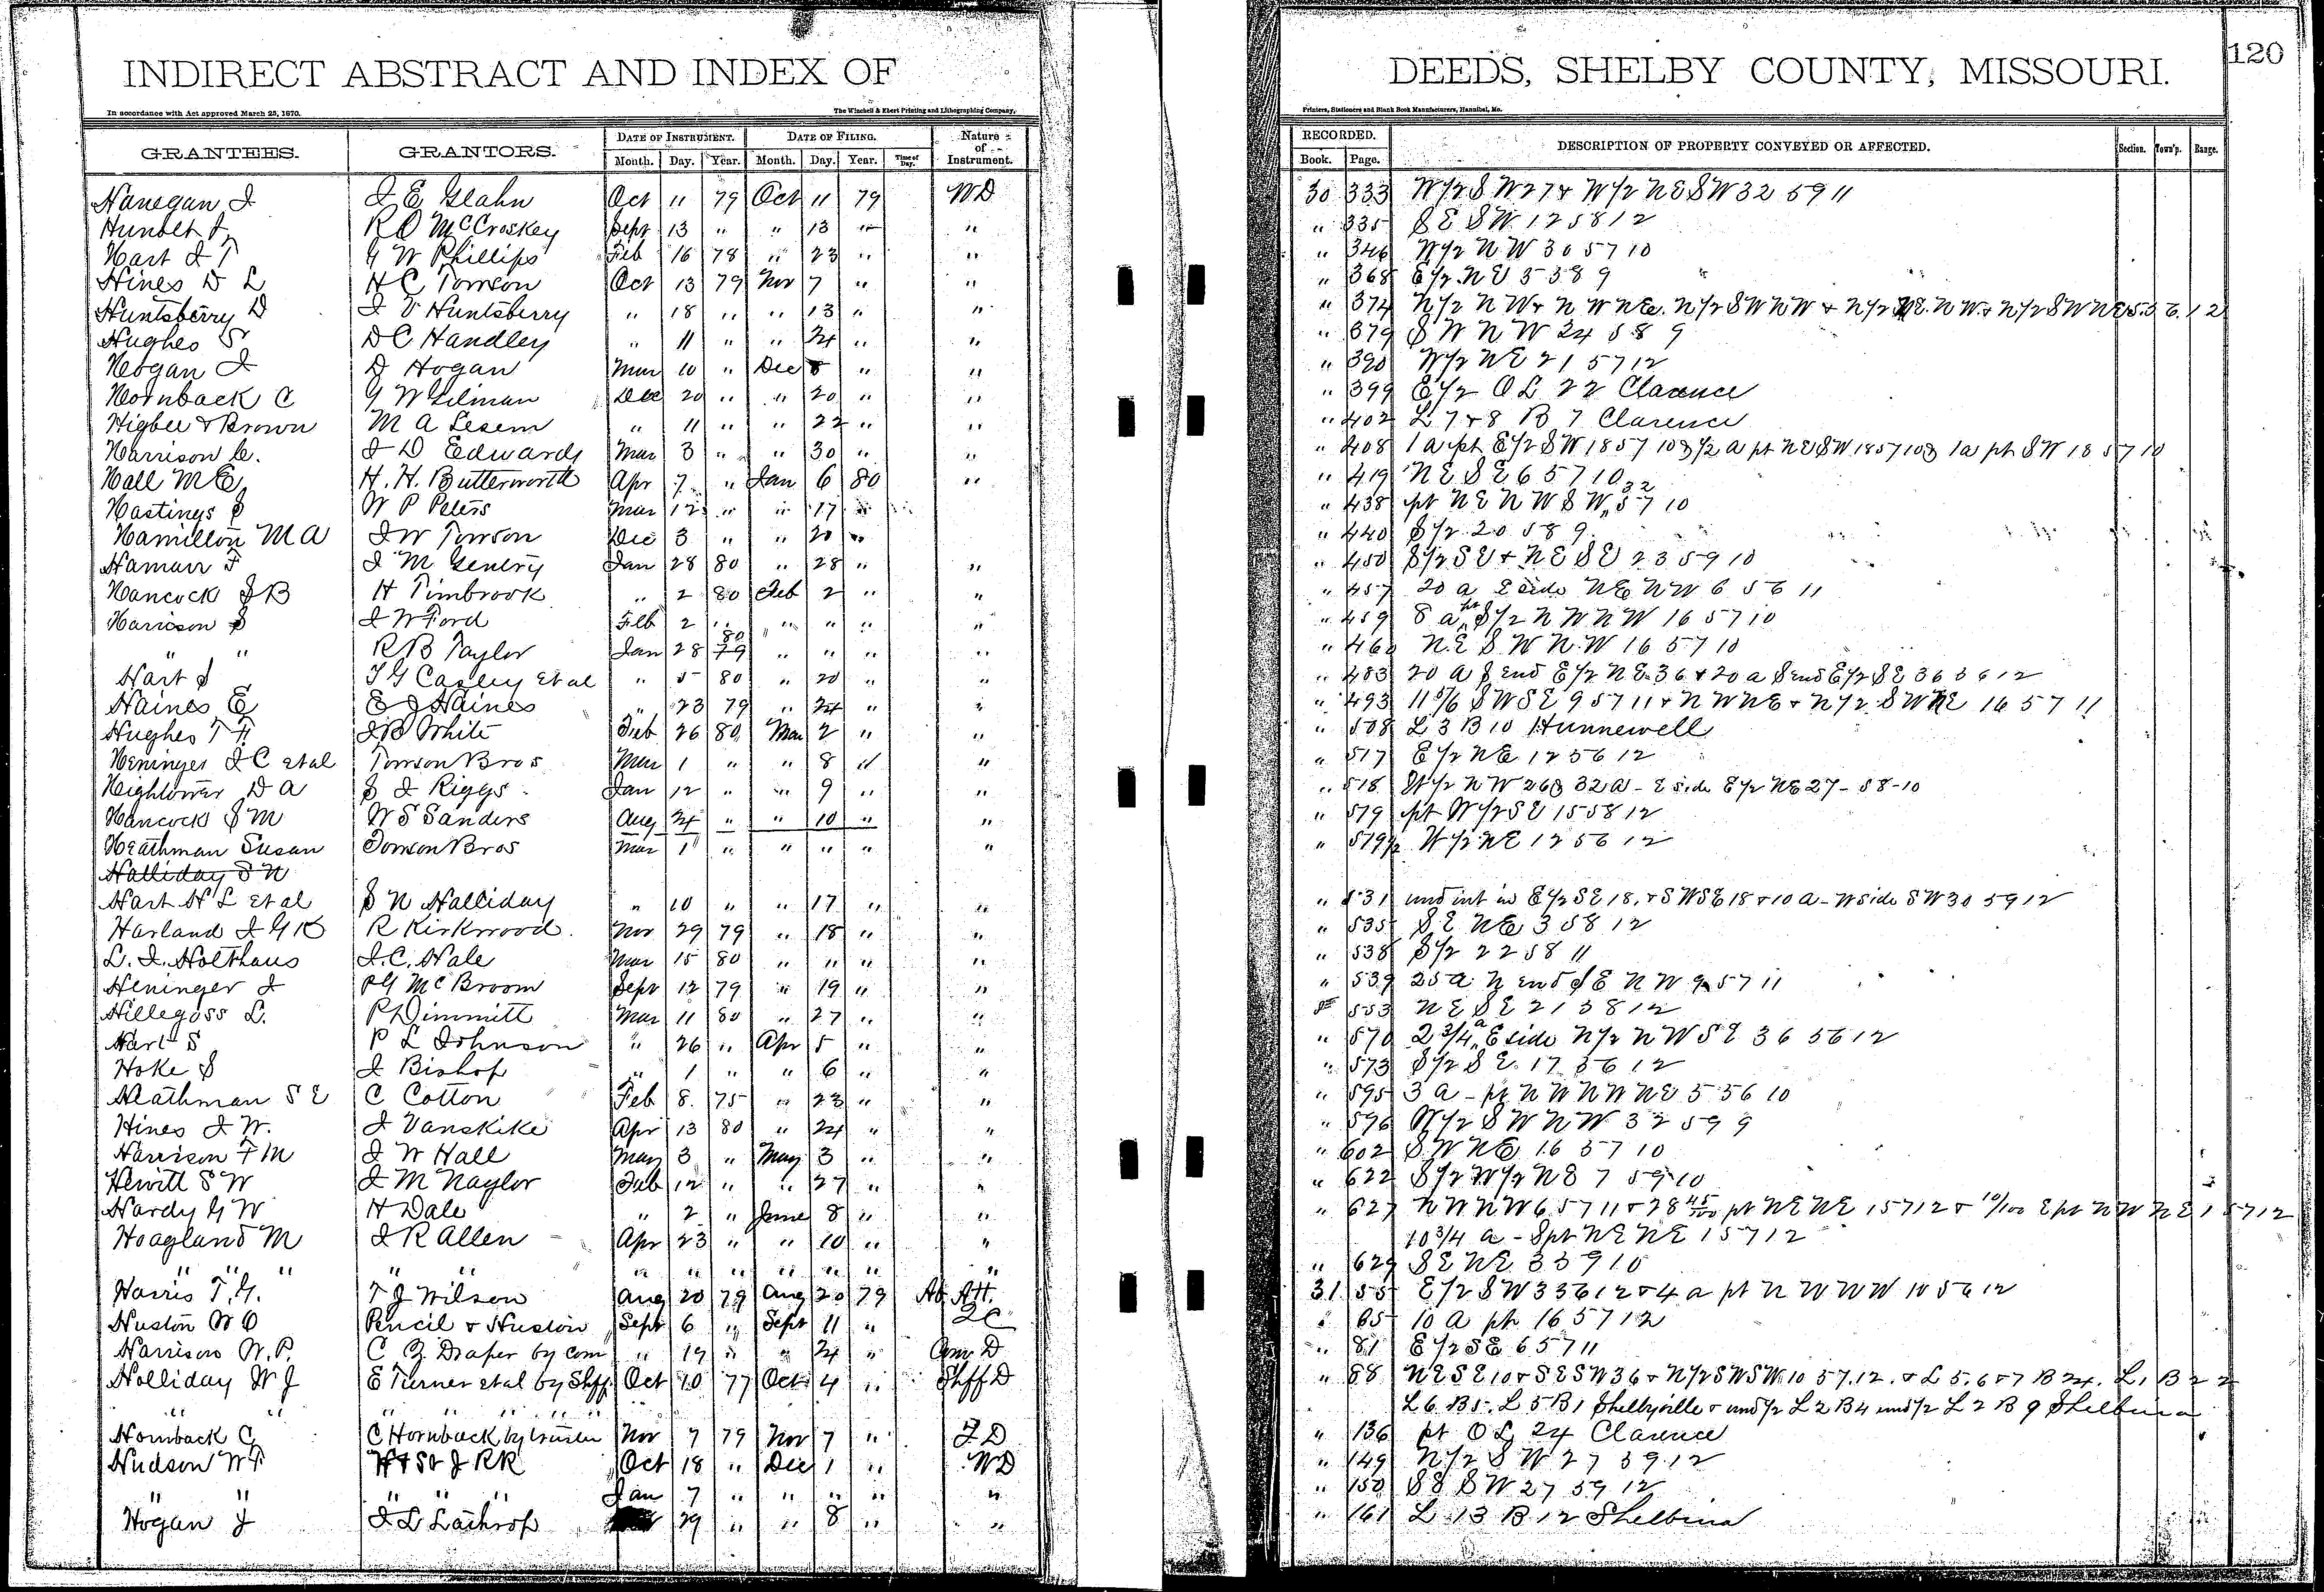 INDIRECT ABSTRACT AND INDEX OF DEEDS, SHELBY COUNTY, MISSOURI. 120
In accordance with Act approved March 25, 1870. The Winchell & Ebert Printing and Lithographing Company, Printers, Stationers and Blank Book Manufacturers, Hannibal, Mo.
GRANTEES. GRANTORS. DATE OF INSTRUMENT. DATE OF FILING. Nature of Instrument. RECORDED. DESCRIPTION OF PROPERTY CONVEYED OR AFFECTED. Section. Town'p. Range.
Month. Day. Year. Month. Day. Year. Time of Day. Book. Page.
Hanegan J J E Glahn Oct 11 79 Oct 11 79 WD 30 333 W/2 S W 27 & W/2 N E S W 32 59 11
Hunolt J R D McCroskey Sept 13 " " 13 " " " 335 S E S W 12 58 12
Hart J T G W Phillips Feb 16 78 " 23 " " " 346 W/2 N W 30 57 10
Hines D L H C Tomson Oct 13 79 Nov 7 " " 368 E/2 N E 5 58 9
Huntsberry D J V Huntsberry " 18 " " 13 " " " 374 N/2 N W & N W N E. N/2 S W N W & N/2 S E. N W. & N/2 S W N E 5.56.12
Hughes S D C Handley " 11 " " 24 " " " 379 S W N W 24 58 9
Hogan J D Hogan Mar 10 " Dec 8 " " " 390 W/2 N E 21 57 12
Hornback C G W Gilman Dec 20 " " 20 " " " 399 E/2 O L 22 Clarence
Higbee & Brown M A Lesem " 11 " " 22 " " " 402 L 7 & 8 B 7 Clarence
Harrison C. J D Edwards Mar 3 " " 30 " " " 408 1 a pt E/2 S W 18 57 10 & 3/2 a pt N E S W 18 57 10 & 1 a pt S W 18 57 10
Hall M E H. H. Butterworth Apr 7 " Jan 6 80 " " 419 N E S E 6 57 10
Hastings S W P Peters Mar 12 " " 17 " " 438 pt N E N W S W 32 57 10
Hamilton M A J W Towson Dec 3 " " 20 " " 440 S/2 20 58 9
Haman F J M Gentry Jan 28 80 " 28 " " " 450 S/2 S E & N E S E 23 59 10
Hancock J B H Timbrook " 2 80 Feb 2 " " " 457 20 a E side N E N W 6 56 11
Harison S J W Ford Feb 2 " " " " " " 459 8 a pt S/2 N W N W 16 57 10
" " R B Taylor Jan 28 80 " " " " " 460 N E S W N W 16 57 10
Hart S T G Casley et al " 5 80 " 20 " " " 483 20 a S end E/2 N E 36 & 20 a S end E/2 S E 36 56 12
Haines E E J Haines " 23 79 " 24 " " " 493 11 5/6 S W S E 9 57 11 & N W N E & N/2 S W N E 16 57 11
Hughes T F J B White Feb 26 80 Mar 2 " " " 508 L 3 B 10 Hunnewell
Heninger J C et al Towson Bros Mar 1 " " 8 " " " 517 E/2 N E 12 56 12
Hightower D A S J Riggs Jan 12 " " 9 " " " 518 W/2 N W 26 & 32 a - E side E/2 N E 27 - 58 - 10
Hancock S M W S Sanders Aug 24 " " 10 " " " 519 pt W/2 S E 15 58 12
Heathman Susan Towson Bros Mar 1 " " " " " " 519 1/2 W/2 N E 12 56 12
Halliday S N
Hart H L et al S N Halliday " 10 " " 17 " " " 531 und int in E/2 S E 18, & S W S E 18 & 10 a - W side S W 30 59 12
Harland J G K R Kirkwood. Nov 29 79 " 18 " " " 535 S E N E 3 58 12
L. J. Holthaus J. C. Hale Mar 15 80 " " " " " 538 S/2 22 58 11
Heninger J P G McBroom Sept 12 79 " 19 " " " 539 25 a N end S E N W 9 57 11
Hillegoss L. P Dimmitt Mar 11 80 " 27 " " 553 N E S E 21 58 12
Hart S P L Johnson " 26 " Apr 5 " " " 570 2 3/4 a E side N/2 N W S E 36 56 12
Hoke S J Bishop " 1 " " 6 " " " 573 S/2 S E 17 56 12
Heathman S E C Cotton Feb 8 75 " 23 " " " 595 3 a - pt N W N W N E 5 56 10
Hines J W. J Vanskike Apr 13 80 " 24 " " " 596 W/2 S W N W 32 59 9
Harrison F M J W Hall May 3 " May 3 " " " 602 S W N E 16 57 10
Hewitt S W J M Naylor Feb 12 " " 27 " " " 622 S/2 W/2 N E 7 59 10
Hardy G W H Dale " 2 " June 8 " " " 627 N W N W 6 57 11 & 28 45/100 pt N E N E 1 57 12 & 10/100 E pt N W N E 1 57 12
Hoagland M J R Allen Apr 23 " " 10 " " 10 3/4 a - S pt N E N E 1 57 12
" " " " " " " " " " " " " 629 S E N E 3 59 10
Harris T. G. T J Wilson Aug 20 79 Aug 20 79 Ab Att. 31 55 E/2 S W 33 56 12 & 4 a pt N W N W 10 56 12
Huston W O Pencil & Huston Sept 6 " Sept 11 " QC " 65 10 a pt 16 57 12
Harrison W. P. C Z Draper by com " 19 " " 24 " Com D " 81 E/2 S E 6 57 11
Holliday W J E Turner et al by Shff Oct 10 77 Oct 4 " Shff D " 88 N E S E 10 & S E S W 36 & N/2 S W S W 10 57.12. & L 5.6 & 7 B 24. L 1 B 22
" " " " " " L 6 B 5. L 5 B 1 Shelbyville & und 1/2 L 2 B 4 und 1/2 L 2 B 9 Shelbina
Hornback C C Hornback by trustee Nov 7 79 Nov 7 " T D " 136 pt O L 24 Clarence
Hudson W F H & St J RR Oct 18 " Dec 1 " WD " 149 N/2 S W 27 59 12
" " " " " Jan 7 " " " " " " 150 S E S W 27 59 12
Hogan J J L Lathrop 29 " " 8 " " " 161 L 13 B 12 Shelbina